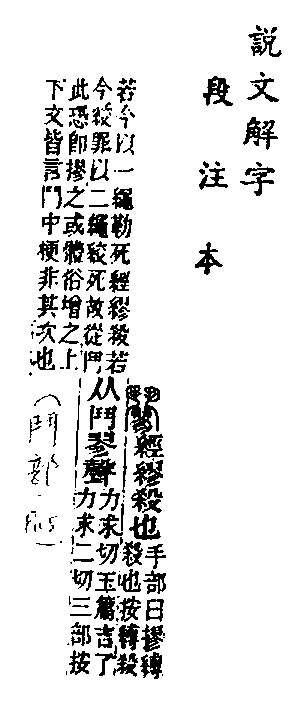 說文解字
段注本
經繆殺也
手部曰摎縛
殺也按縛殺
若今以一繩勒死經繆殺若
今絞罪以二繩絞死故從鬥
从鬥翏聲
力求切玉篇吉了
力求二切三部按
此恐即摎之或體俗增之上
下文皆言鬥中梗非其次也
(鬥部